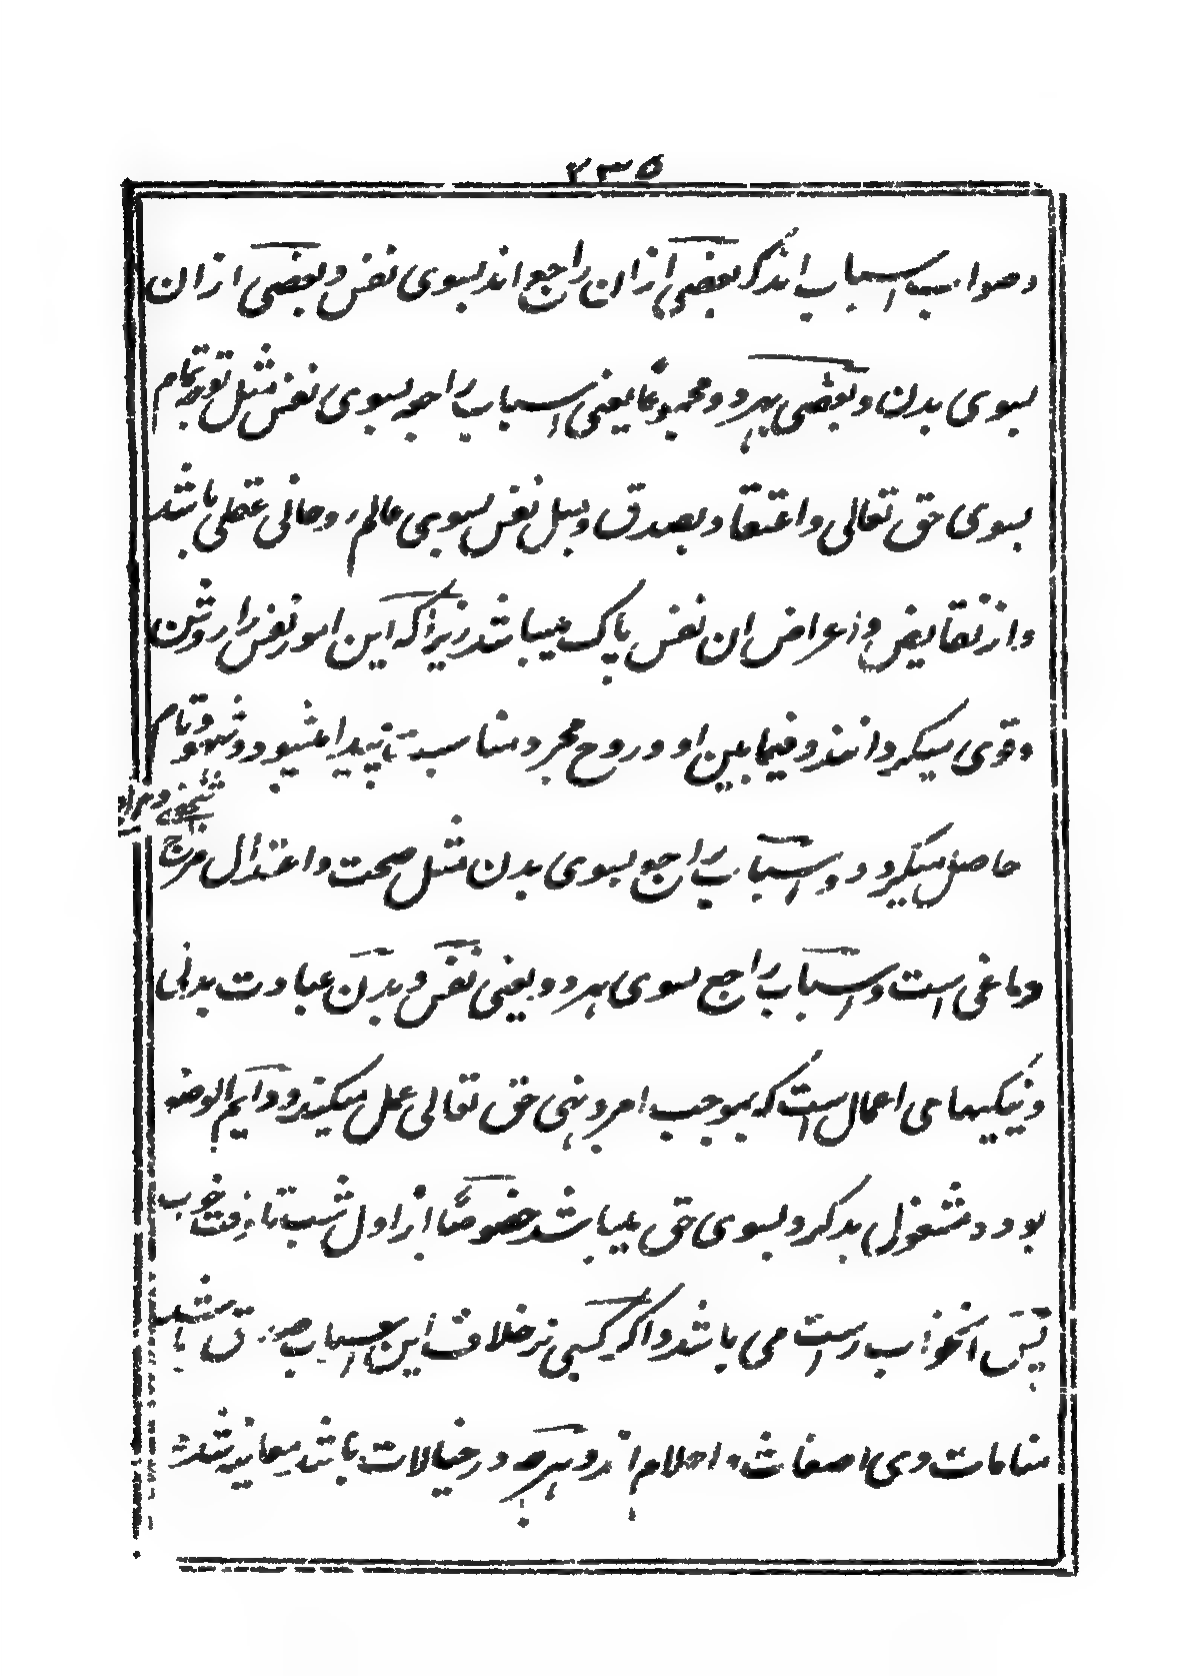 ۲۳۵
و صواب اسباب اند که بعضی ازان راجع اند بسوی نفس و بعضی ازان
بسوی بدن و بعضی بهر دو و مجموعا یعنی اسباب راجعه بسوی نفس مثل توجه تمام
بسوی حق تعالی و اعتقاد بصدق و میل نفس بسوی عالم روحانی عقلی باشد
و از نقایض و اعراض ان نفس پاک میباشد زیرا که این امور نفس را روشن
و قوی میگردانند و فیما بین او و روح مجرد مناسبت پیدا میشود و شهو تام
حاصل میگردد و اسباب راجع بسوی بدن مثل صحت و اعتدال مزاج
دماغی است و اسباب راجع بسوی هر دو یعنی نفس و بدن عبادت بدنی
و نیکیهای اعمال است که بموجب امر و نهی حق تعالی عمل میکند و دایم الوضو
بود و مشغول بذکر و بسوی حق میباشد خصوصا از اول شب تا وقت خوب
پس انخواب راست می باشد و اگر کسی بر خلاف این اسباب صدق باشد
منامات وی اصغاث احلام اند و هرچه در خیالات باشد معاینه شد